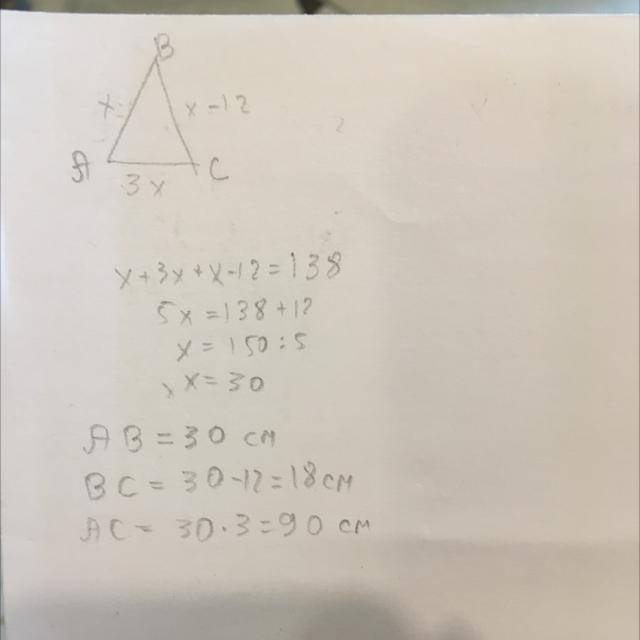 B
x x-12
A C
3x
x+3x+x-12=138
5x=138+12
x=150:5
x=30
AB=30 см
BC=30-12=18см
AC=30·3=90 см